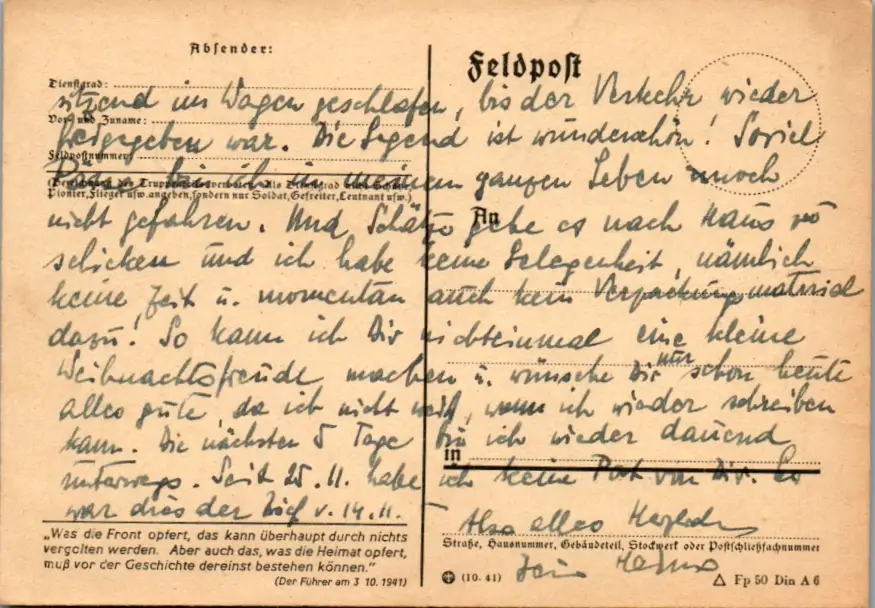 Absender:
Feldpost
Dienstgrad:
sitzend im Wagen geschlafen, bis der Verkehr wieder
Vor- und Zuname:
freigegeben war. Die Gegend ist wunderschön! Soviel
Feldpostnummer:
Pässe bin ich in meinem ganzen Leben noch
(Bezeichnung des Truppenteils verboten. Als Dienstgrad nicht Schütze,
Pionier, Flieger usw. angeben, sondern nur Soldat, Gefreiter, Leutnant usw.)
nicht gefahren. Und, Schätze gebe es nach Haus zu
An
schicken und ich habe keine Gelegenheit, nämlich
keine Zeit u. momentan auch kein Verpackungsmaterial
dazu! So kann ich Dir nichteinmal eine kleine
Weihnachtsfreude machen u. wünsche Dir nur schon heute
alles gute, da ich nicht weiß, wann ich wieder schreiben
kann. Die nächsten 5 Tage bin ich wieder dauernd
in
unterwegs. Seit 25.11. habe ich keine Post von Dir. Es
war dies der Brief v. 14.11.
Also alles Herzliche
Dein
„Was die Front opfert, das kann überhaupt durch nichts
vergolten werden. Aber auch das, was die Heimat opfert,
muß vor der Geschichte dereinst bestehen können."
(Der Führer am 3 10. 1941)
Straße, Hausnummer, Gebäudeteil, Stockwerk oder Postschließfachnummer
(10. 41)
Fp 50 Din A 6